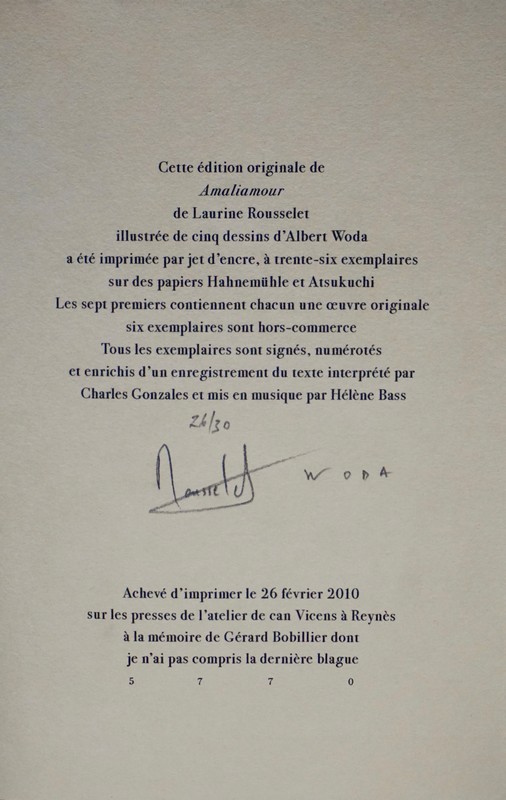 Cette édition originale de
Amaliamour
de Laurine Rousselet
illustrée de cinq dessins d'Albert Woda
a été imprimée par jet d'encre, à trente-six exemplaires
sur des papiers Hahnemühle et Atsukuchi
Les sept premiers contiennent chacun une œuvre originale
six exemplaires sont hors-commerce
Tous les exemplaires sont signés, numérotés
et enrichis d'un enregistrement du texte interprété par
Charles Gonzales et mis en musique par Hélène Bass
26/30
Rousselet WODA
Achevé d'imprimer le 26 février 2010
sur les presses de l'atelier de can Vicens à Reynès
à la mémoire de Gérard Bobillier dont
je n'ai pas compris la dernière blague
5 7 7 0